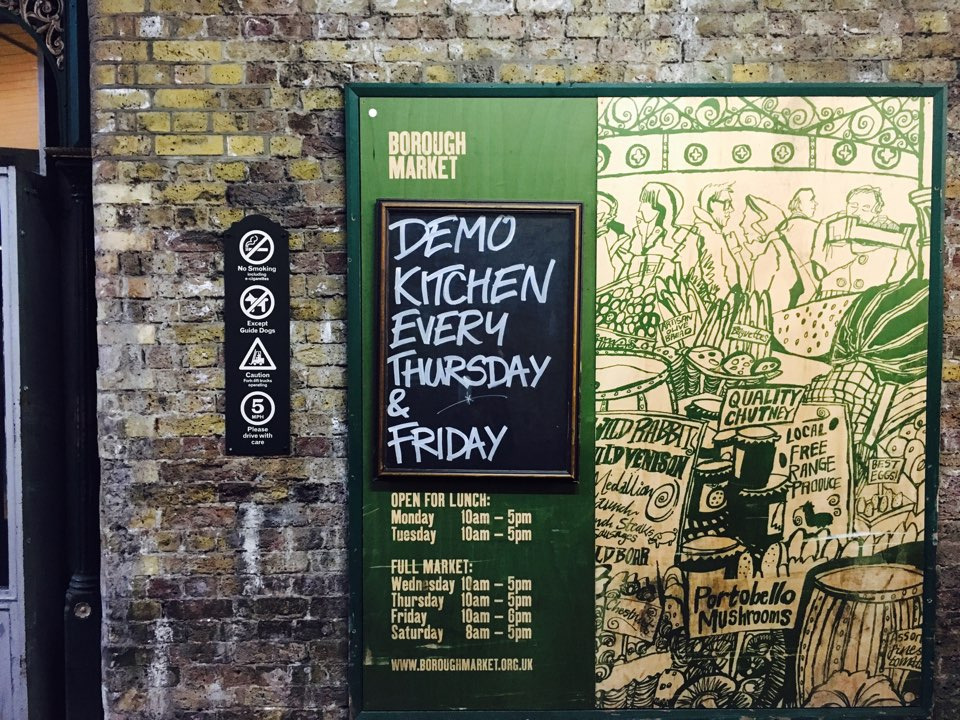 No Smoking
including
e-cigarettes
Except
Guide Dogs
Caution
Fork-lift trucks
operating
5
MPH
Please
drive with
care
BOROUGH
MARKET
DEMO
KITCHEN
EVERY
THURSDAY
&
FRIDAY
OPEN FOR LUNCH:
Monday 10am – 5pm
Tuesday 10am – 5pm
FULL MARKET:
Wednesday 10am – 5pm
Thursday 10am – 5pm
Friday 10am – 6pm
Saturday 8am – 5pm
WWW.BOROUGHMARKET.ORG.UK
ARTISAN
QUALITY
CHUTNEY
WILD RABBIT
WILD VENISON
Medallion
LOCAL
FREE
RANGE
PRODUCE
BEST
EGGS
Portobello
Mushrooms